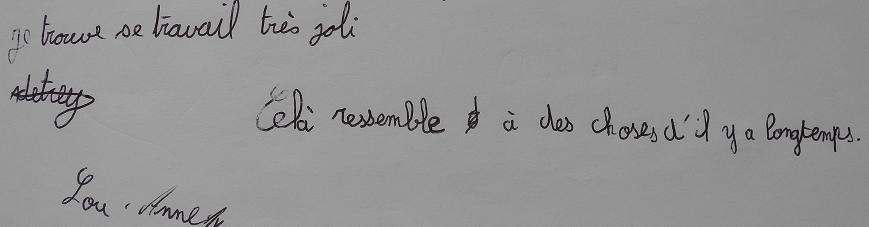 je trouve se travail très joli
Celà ressemble à des choses d'il y a longtemps.
Lou-Anne